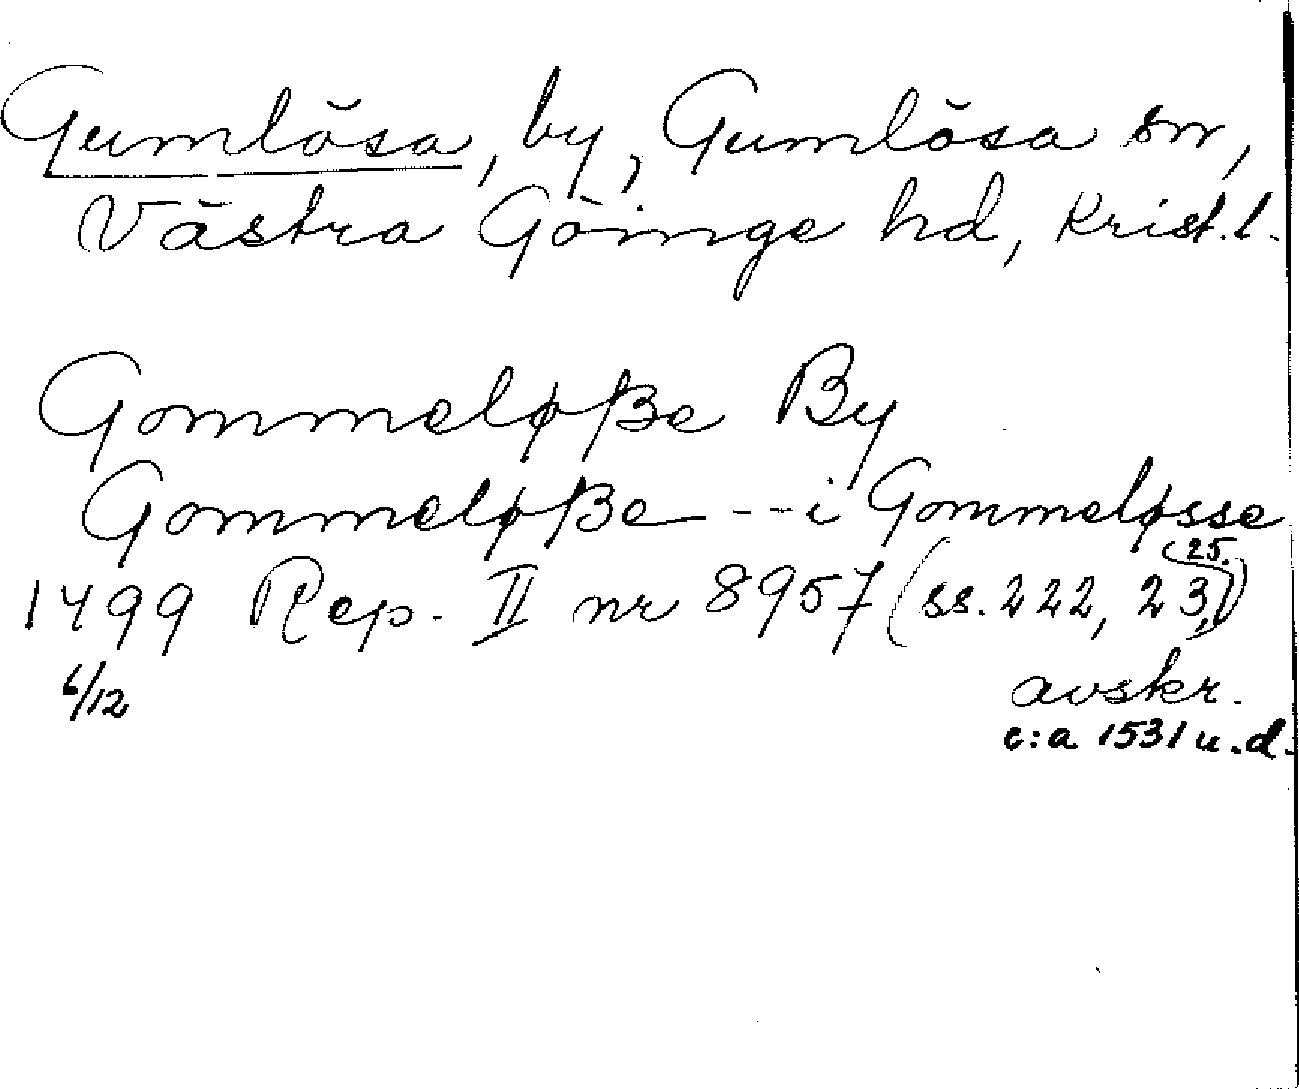 Gumlösa, by, Gumlösa sn,
Västra Göinge hd, Krist. l.
Gommeløße By
Gommeløße --- i Gommeløsse
1499 Rep. II nr 8957 (ss. 222, 23, 25.)
6/12 avskr.
c:a 1531 u.d.